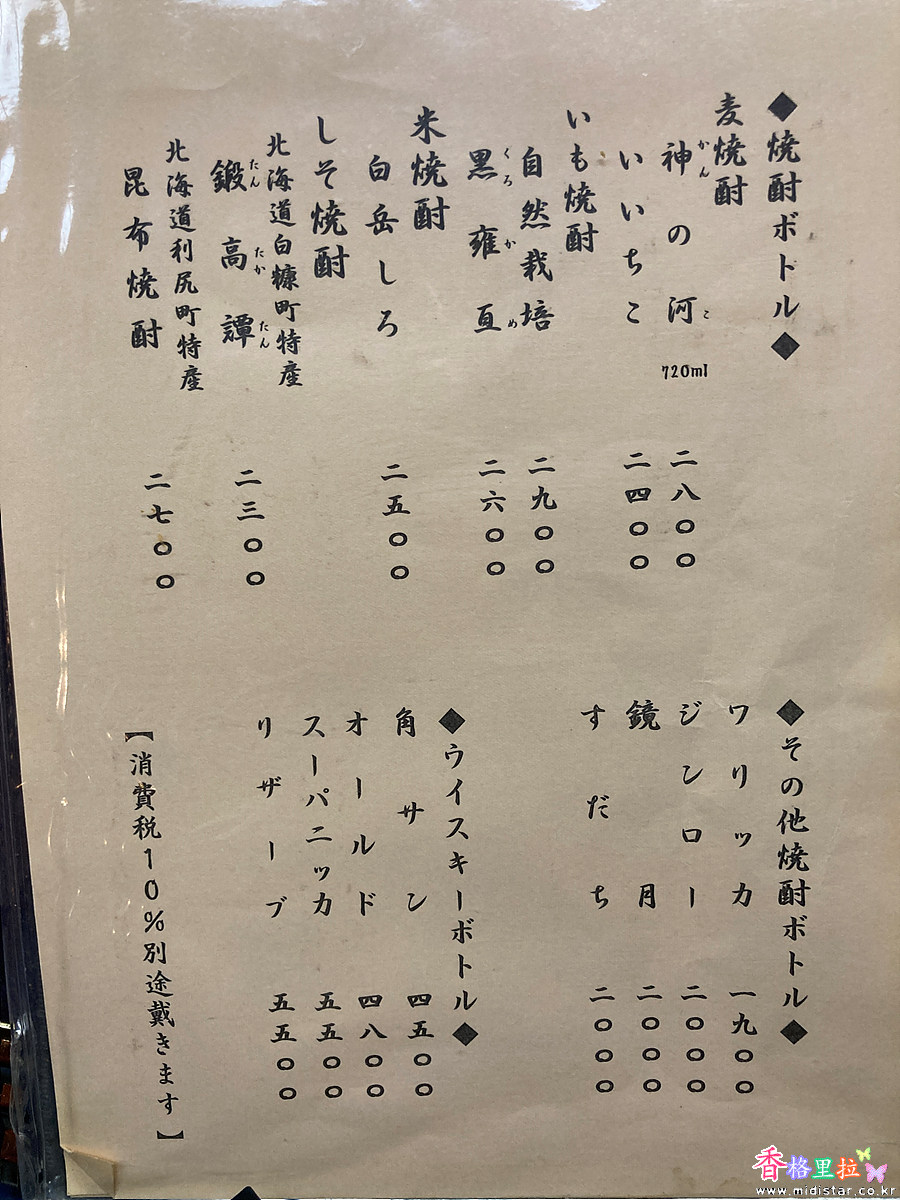 ◆焼酎ボトル◆
麦焼酎
神の河 720ml 二八〇〇
かん こ
いいちこ 二四〇〇
いも焼酎
自然栽培 二九〇〇
黒雍亘 二六〇〇
くろ か め
米焼酎
白岳しろ 二五〇〇
しそ焼酎
北海道白糠町特産
鍛高譚 二三〇〇
たん たか たん
北海道利尻町特産
昆布焼酎 二七〇〇
◆その他焼酎ボトル◆
ワリッカ 一九〇〇
ジンロー 二〇〇〇
鏡月 二〇〇〇
すだち 二〇〇〇
◆ウイスキーボトル◆
角サン 四五〇〇
オールド 四八〇〇
スーパニッカ 五五〇〇
リザーブ 五五〇〇
【消費税10%別途戴きます】
香格里拉
www.midistar.co.kr